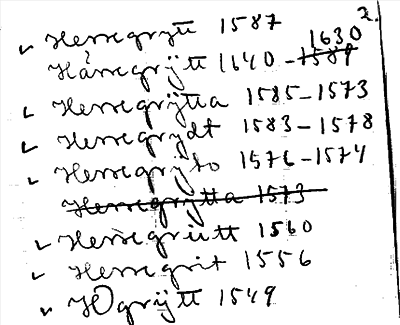 2.
✓ Herregrytt 1587
1630
Härregrytt 1640 – ~~1589~~
✓ Herregrÿtta 1585–1573
✓ Herregrydt 1583–1578
✓ Herregryto 1576–1574
~~Herregrytta 1573~~
✓ Herregriitt 1560
✓ Herregrit 1556
✓ grÿtt 1549